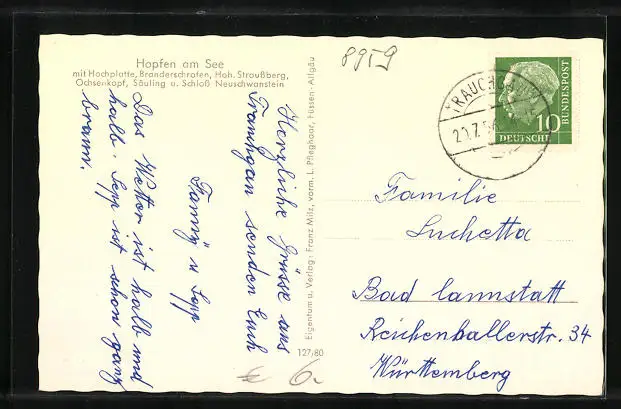 Hopfen am See
mit Hochplatte, Branderschrofen, Hoh. Straußberg,
Ochsenkopf, Säuling u. Schloß Neuschwanstein
Herzliche Grüsse aus
Trauchgau senden Euch
Fanny u Sepp
Das Wetter ist halb und
halb. Sepp ist schon ganz
braun.
Eigentum u. Verlag: Franz Milz, vorm. L. Pfleghaar, Füssen-Allgäu
127/80
6.-
8959
RAUCHGAU
20.7.56
10
DEUTSCHE
BUNDESPOST
Familie
Luchetta
Bad Cannstatt
Reichenhallerstr. 34
Württemberg